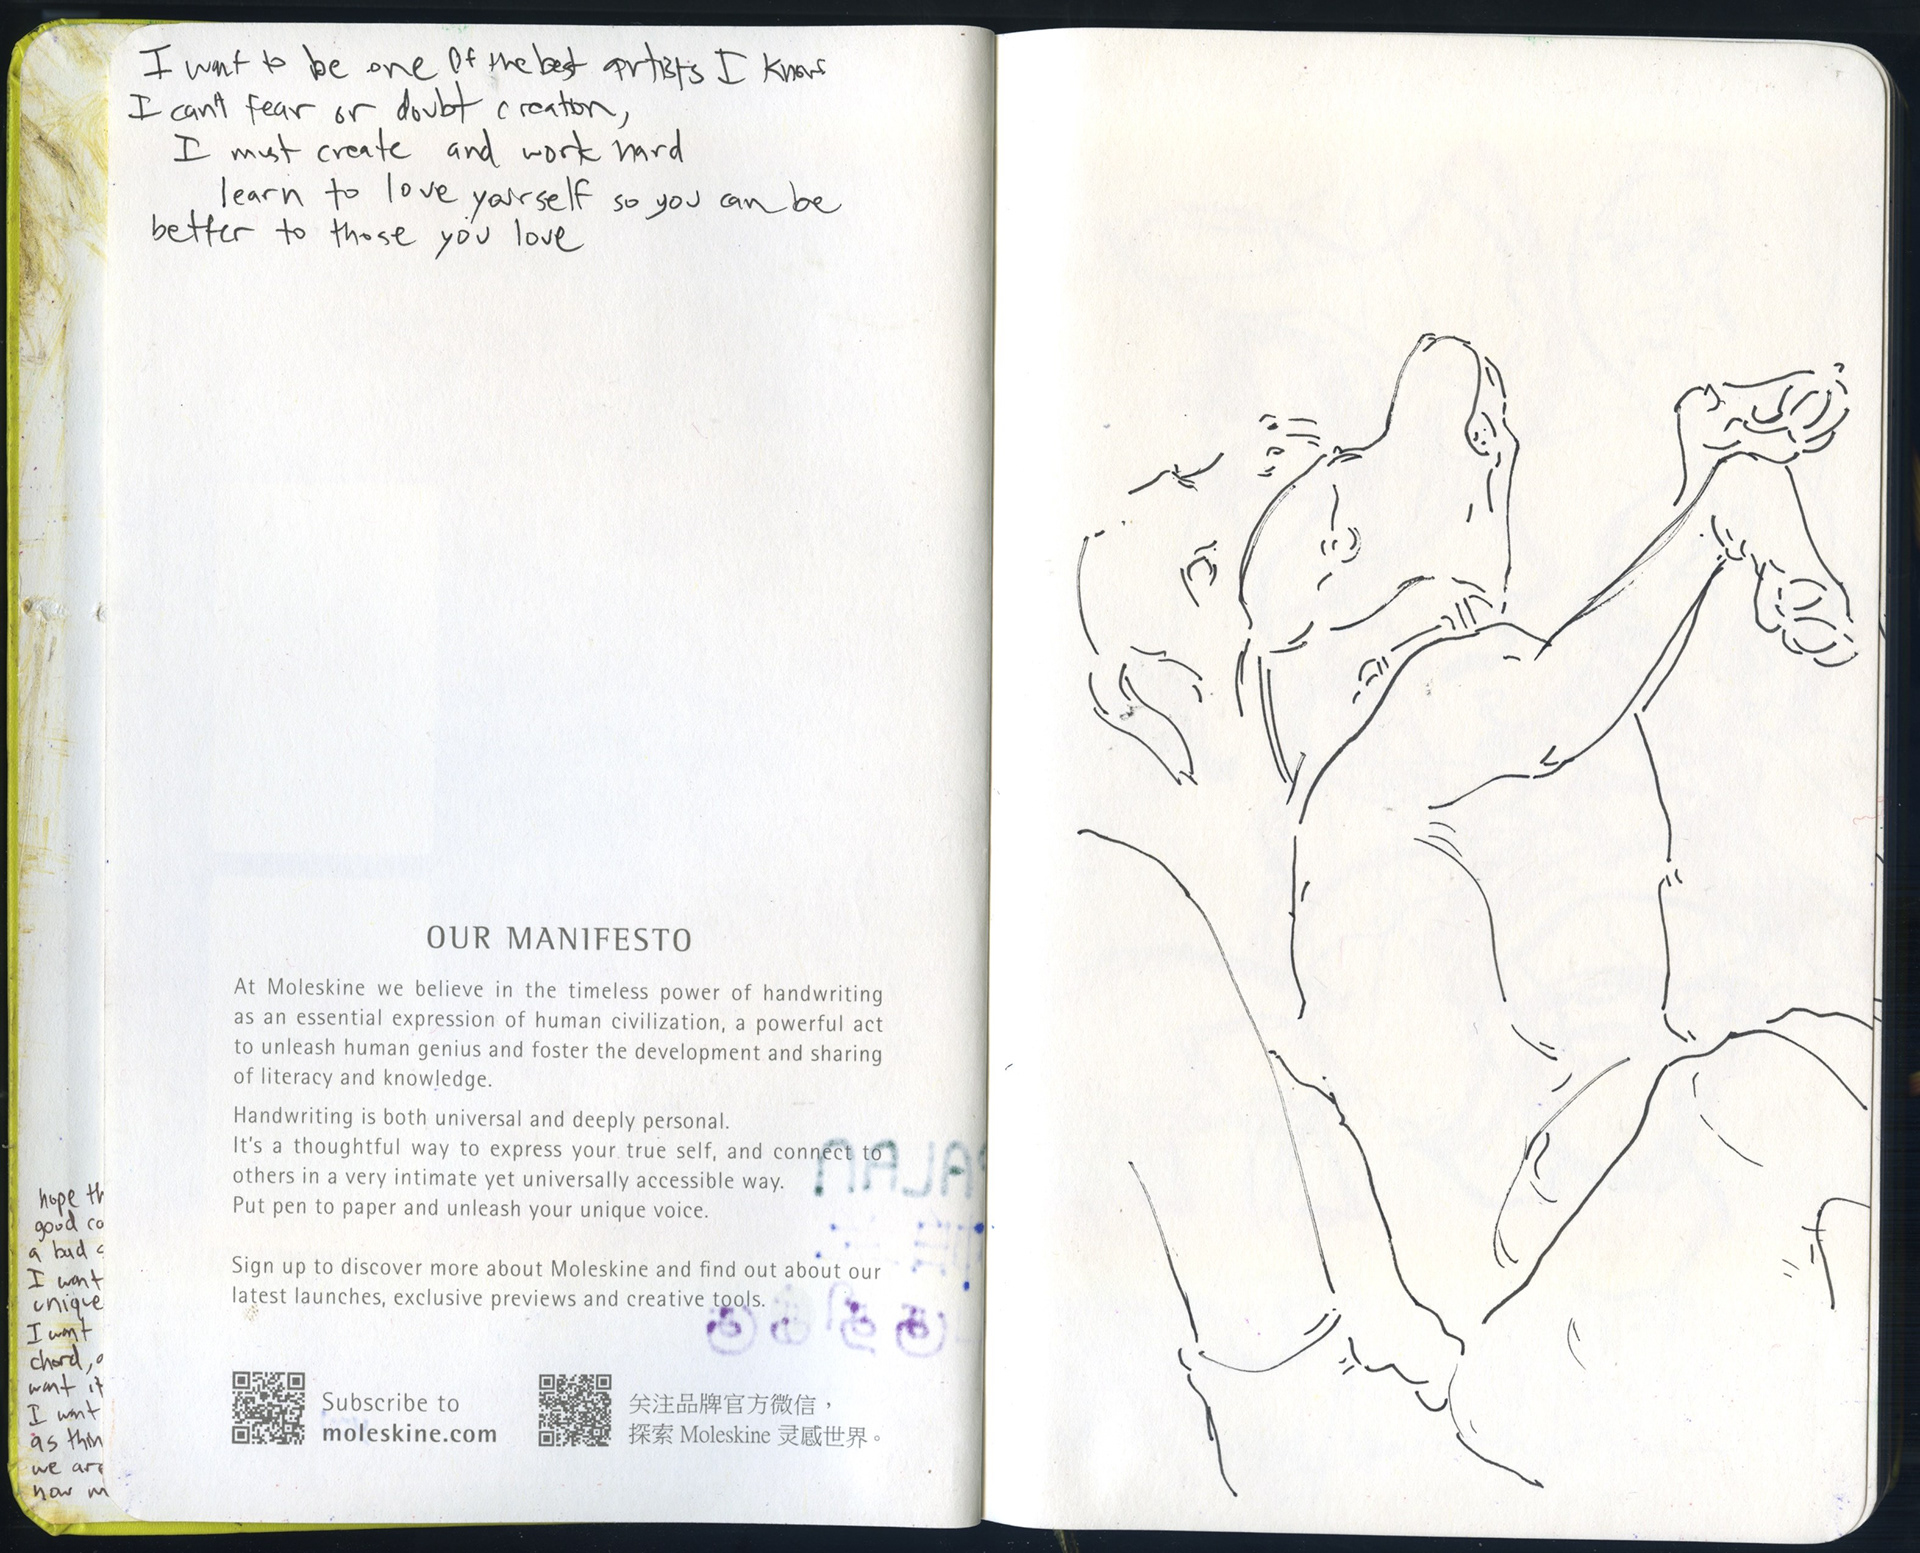 I want to be one of the best artists I know
I can't fear or doubt creation,
I must create and work hard
learn to love yourself so you can be
better to those you love
OUR MANIFESTO
At Moleskine we believe in the timeless power of handwriting
as an essential expression of human civilization, a powerful act
to unleash human genius and foster the development and sharing
of literacy and knowledge.
Handwriting is both universal and deeply personal.
It's a thoughtful way to express your true self, and connect to
others in a very intimate yet universally accessible way.
Put pen to paper and unleash your unique voice.
Sign up to discover more about Moleskine and find out about our
latest launches, exclusive previews and creative tools.
Subscribe to
moleskine.com
关注品牌官方微信，
探索 Moleskine 灵感世界。
hope th
good co
a bad c
I want
unique
I want
chord,
want it
I want
as thin
we are
now m